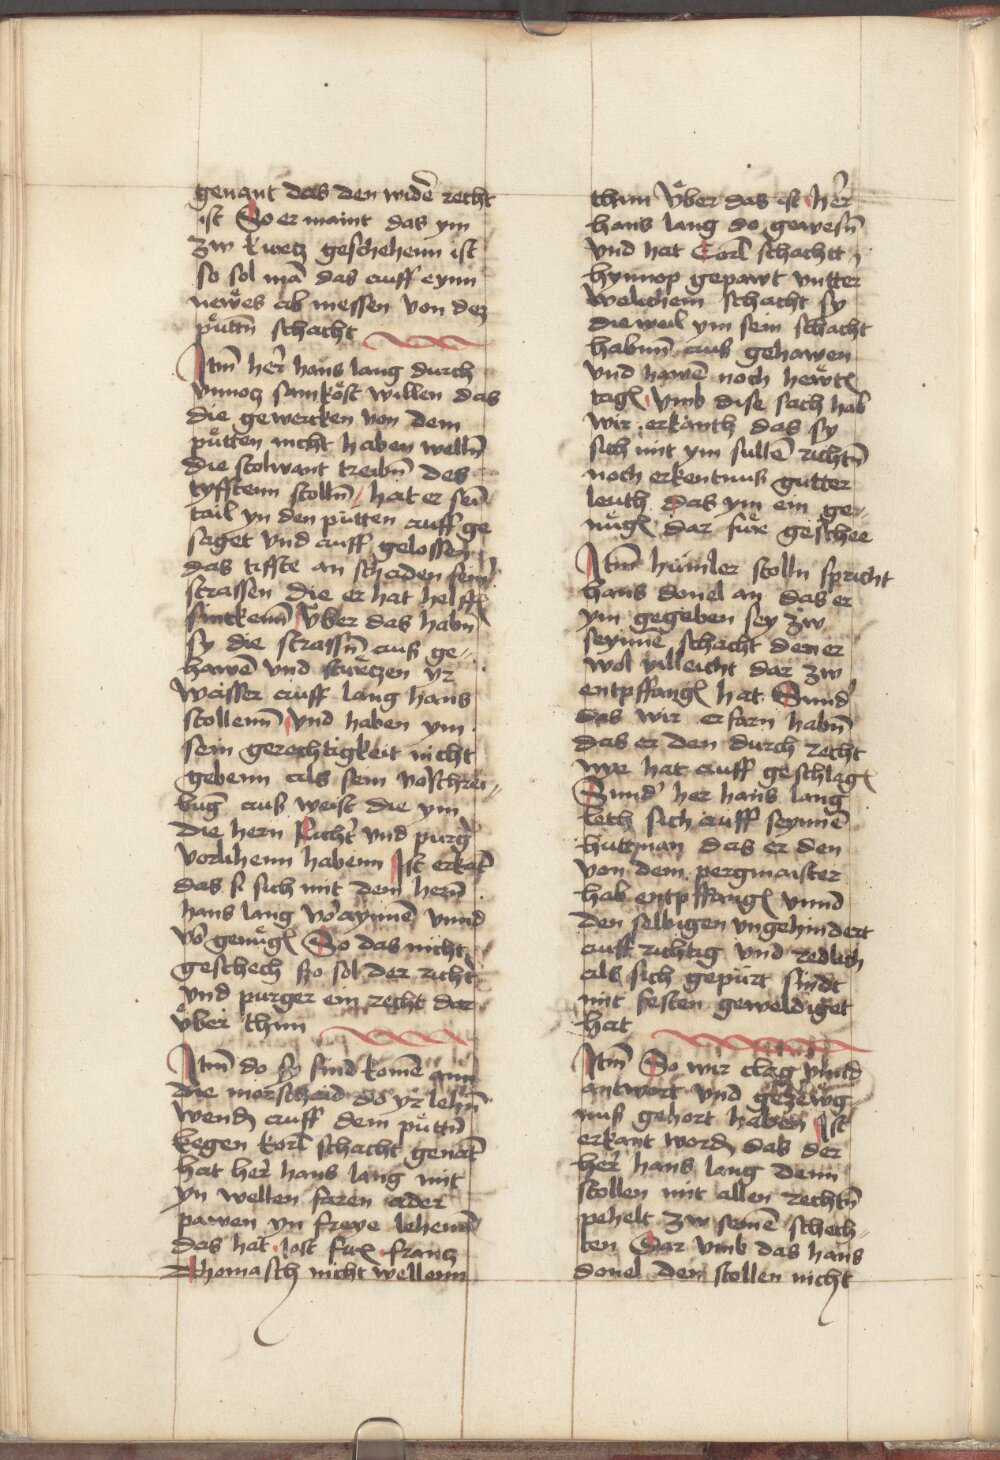 genant das den widē recht
ist So er maint das ym
zw kurtz geschehenn ist
so sol mā das auff eynn
newes ab messen von dez
püttn̄ schacht
Itm̄ her̄ hans lang durch
vnnotz samkost willen das
die gewercken von dem
pütten nicht haben welln̄
die stolwant treibn̄ des
tyffstenn stolln̄ hat er sein̄
tail yn den pütten auff ge
saget vnd auff gelossen
das tiffste an schaden sein̄
strassen die er hat helffn̄
sinckenn̄ Vber das habn̄
sy die strassn̄ aus ge-
hawē vnd sturtzen yr
wasser auff lang hans
stollenn̄ vnd haben ym
sein gerechtigkeit nicht
gebenn als sein voschrei-
buḡ aus weist die ym
die hern Richt̄ vnd purḡ
vorlihenn habenn Ist erkāt
das si sich mit dem hern̄
hans lang vo aynnē vnnd
vo genugn̄ So das nicht
geschech szo sol der richt̄
vnd purger ein recht dar
vber thun
Itm̄ do sy sind komē ann
die morscheid do yr lehn̄
wendn̄ auff dem püttn̄
kegen korl schacht genāt
hat her̄ hans lang mit
yn wellen faren ader
pawen yn freye lehenn̄
das hat jost fux frantz
Thomasch nicht wellenn
thun Vber das ist her̄
hans lang do gewesn̄
vnd hat Corl schachtt
hynnop gepawt vntter
welichem schacht sy
dieweil ym sein schacht
habnn̄ aus gehawen
vnd hawē noch hewtn̄
tagn̄ vmb dise sach hab
wir erkanth das sy
sich mit ym sullē richtn̄
noch erkentnus gutter
leuth das ym ein ge-
nugn̄ dar fure geschee
Itm̄ hümler stolln spricht
hans donel an das er
ym gegeben sey zw
seynnē schacht den er
wol villeicht dar zw
entpffangn̄ hat Sund̄
das wir erfarn habn̄
das er den durch recht
nye hat auff geschlagn̄
Sund̄ her hans lang
leth sich auff seynnē
huttman das er den
von dem pergmaister
hab entpffangn̄ vnnd
den selbigen vngehindert
auff richtig vnd redlich
als sich gepürt sindt
mit festen geweldiget
hat
Itm̄ So wir clag vnnd
antwort vnd gezewg
nus gehort haben Ist
erkant wordn̄ das der
her̄ hans lang denn
stollen mit allen rechtn̄
pehelt zw seinē schech-
ten Dar vmb das hans
donel den stollen nicht